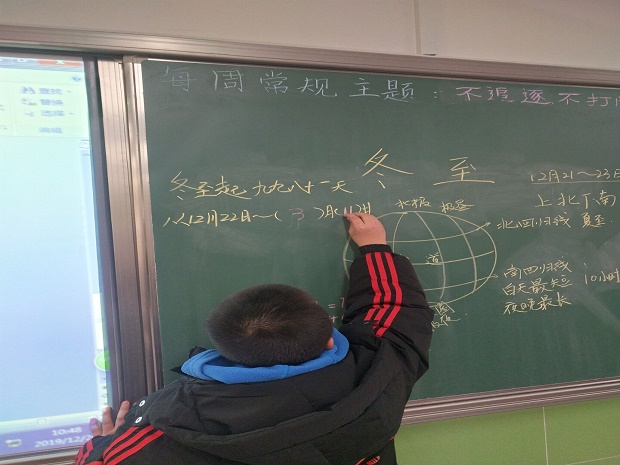 每周常规主题：不追逐不打
冬至
冬至起九九八十一天
从12月22日～（3）月
北极 极昼
12月21～23日
上北下南
北回归线 夏至
道
南回归线
白天最短 10小时
夜晚最长
圆
查找
替换
选择
编辑
10:48
2019/12/2